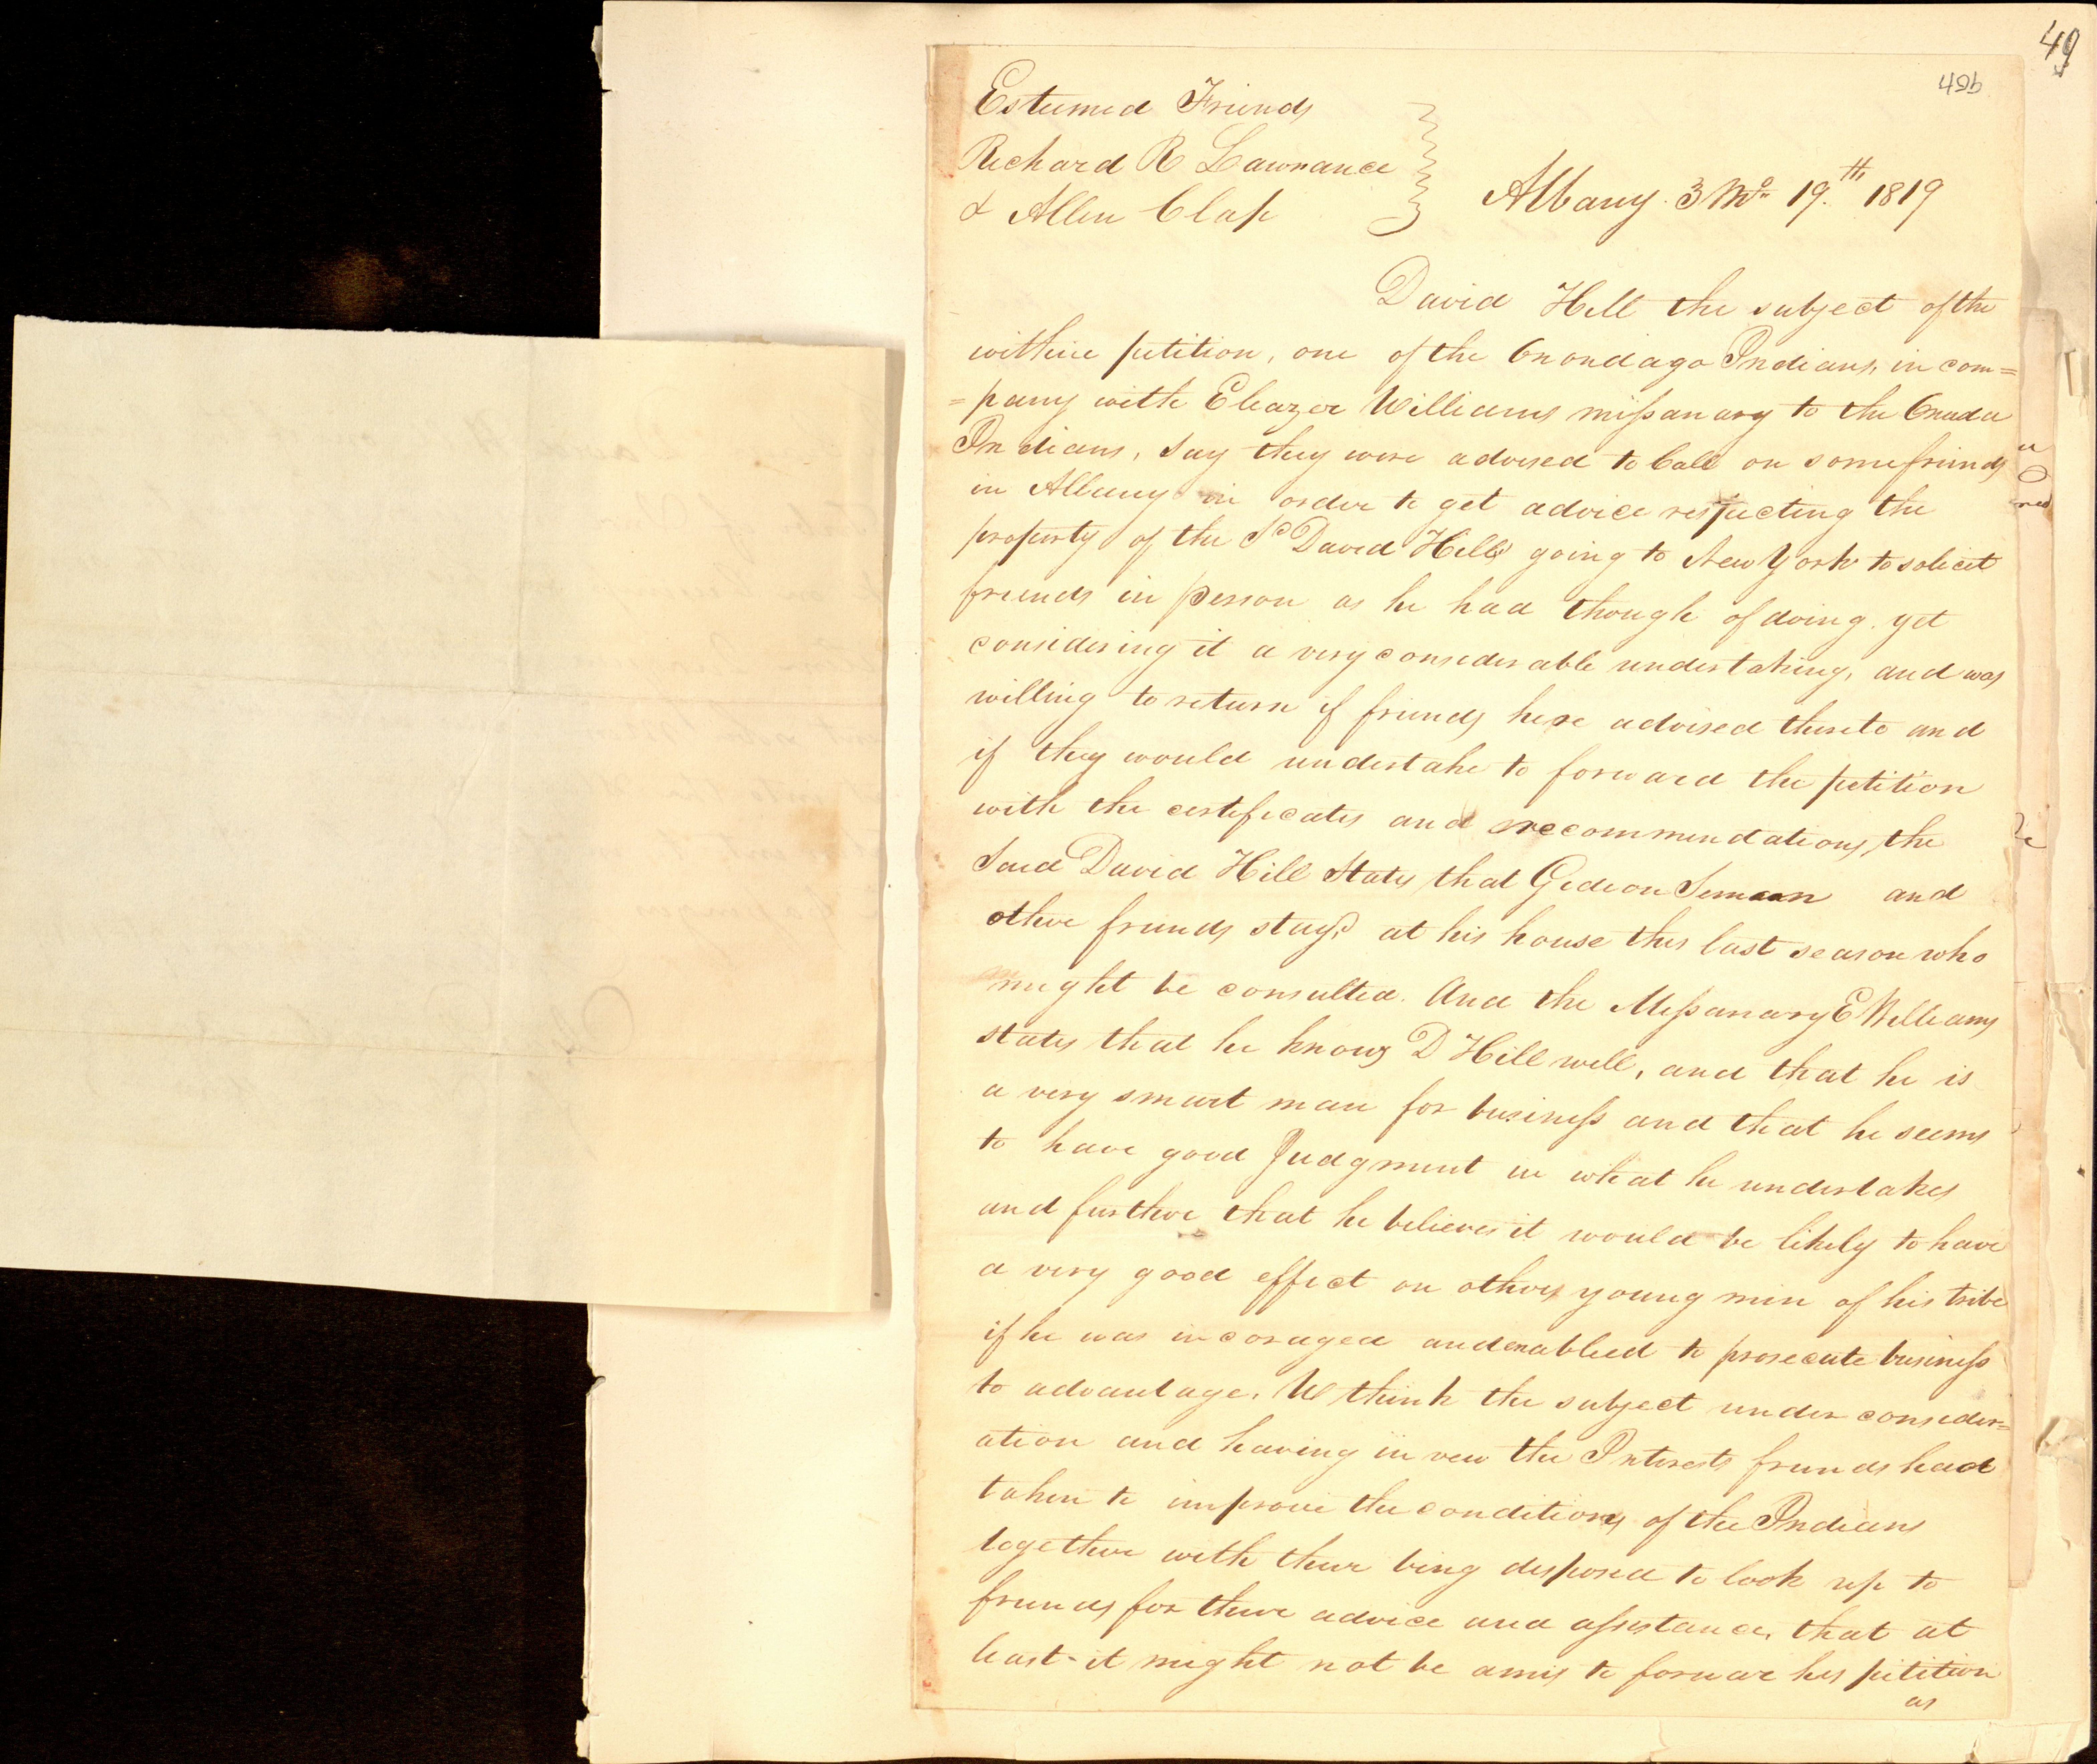 49
49b
Esteemed Friends
Richard R Lawrance
& Allen Clap
Albany 3 Mo 19th 1819
David Hill the subject of the
within petition, one of the Onondago Indians, in com=
=pany with Eleazer Williams missanary to the Oneida
Indians, say they were advised to Call on some friends
in Albany in order to get advice respecting the
property of the Sd David Hills going to New York to solicit
friends in person as he had though of doing. yet
considering it a very considerable undertaking, and was
willing to return if friends here advised thereto and
if they would undertake to forward the petition
with the certificates and reccommendations, the
Said David Hill States that Gedeon Seman and
other friends stayd at his house this last season who
might be consulted. And the Missanary E Williams
states that he knows D Hill well, and that he is
a very smart man for business and that he seems
to have good Judgment in what he undertakes
and further that he believes it would be likely to have
a very good effect on others young men of his tribe
if he was incoraged and enableed to prosecute business
to advantage. We think the subject under consider=
ation and having in veiw the Interests friends had
taken to improve the conditions of the Indians
together with their bing disposed to look up to
friends for their advice and assistance, that at
least it might not be amis to forwar his petition
as